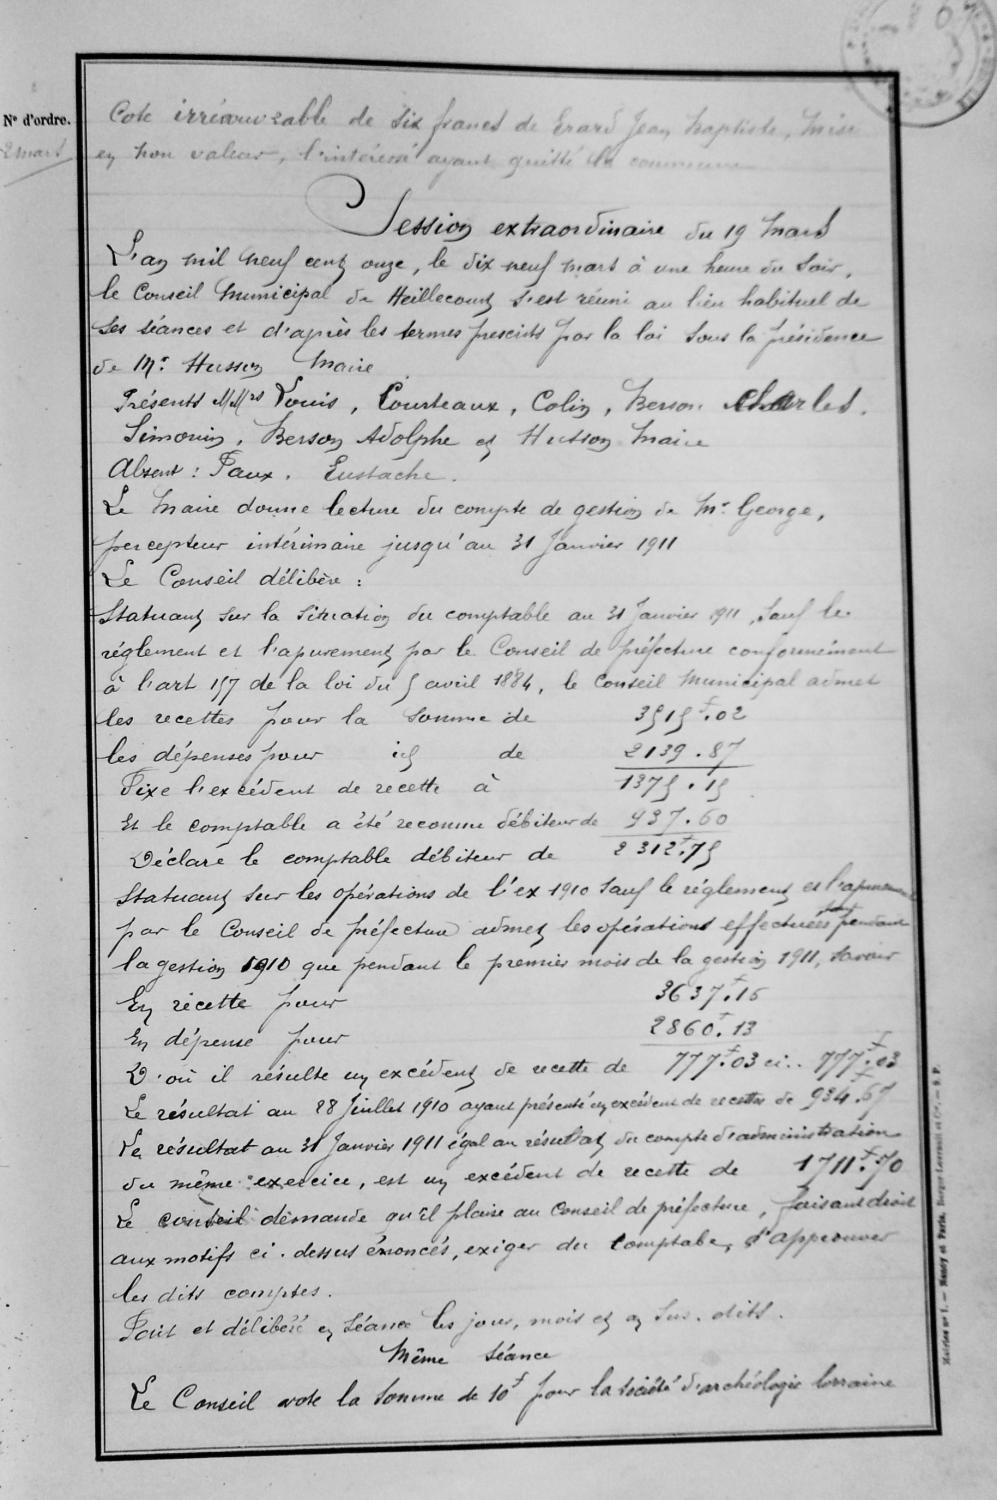 N° d'ordre.
2 mars
Cote irrécouvrable de six francs de Erard Jean Baptiste, mise
en non valeur, l'intéressé ayant quitté la commune
Session extraordinaire du 19 Mars
L'an mil neuf cent onze, le dix neuf mars à une heure du soir,
le Conseil Municipal de Heillecourt s'est réuni au lieu habituel de
ses séances et d'après les termes prescrits par la loi sous la présidence
de Mr Husson Maire
Présents MMrs Louis, Courteaux, Colin, Berson Charles,
Simonin, Berson Adolphe et Husson Maire
Absent : Paux. Eustache.
Le Maire donne lecture du compte de gestion de Mr George,
percepteur intérimaire jusqu'au 31 Janvier 1911
Le Conseil délibère :
Statuant sur la situation du comptable au 31 Janvier 1911, sauf le
réglement et l'apurement par le Conseil de préfecture conformément
à l'art 157 de la loi du 5 avril 1884, le Conseil Municipal admet
les recettes pour la somme de 3515f.02
les dépenses pour id de 2139.87
Fixe l'excédent de recette à 1375.15
Et le comptable a été reconnu débiteur de 937.60
Déclare le comptable débiteur de 2312f.75
Statuant sur les opérations de l'ex 1910 sauf le réglement et l'apurement
par le Conseil de préfecture admet les opérations effectuées tant pendant
la gestion 1910 que pendant le premier mois de la gestion 1911, savoir
En recette pour 3637f.16
En dépense pour 2860f.13
D'où il résulte un excédent de recette de 777f.03 ci.. 777f.03
Le résultat au 28 Juillet 1910 ayant présenté un excédent de recettes de 934f.67
Le résultat au 31 Janvier 1911 égal au résultat du compte d'administration
du même exercice, est un excédent de recette de 1711f.70
Le conseil demande qu'il plaise au Conseil de préfecture, faisant droit
aux motifs ci-dessus énoncés, exiger du comptable, d'approuver
les dits comptes.
Fait et délibéré en séance les jour, mois et an sus-dits.
Même séance
Le Conseil vote la somme de 10f pour la société d'archéologie lorraine
Mairies n° 1. — Nancy et Paris, Berger-Levrault et Cie. — 9 P.